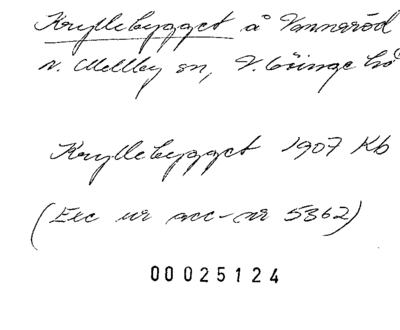 Kryllebygget å Vannaröd
N. Mellby sn, V. Göinge hd
Kryllebygget 1907 Kb
(Exc ur acc-nr 5362)
00025124